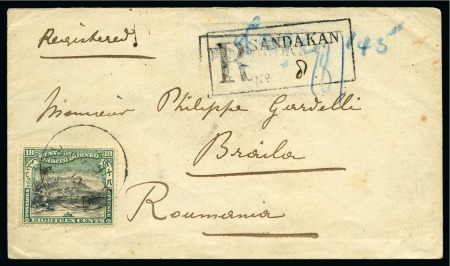 Registered.
R SANDAKAN
No 8
Monsieur Philippe Gardelli
Braila
Roumania
18 18
STATE OF
NORTH BORNEO
POSTAGE & REVENUE
EIGHTEEN CENTS